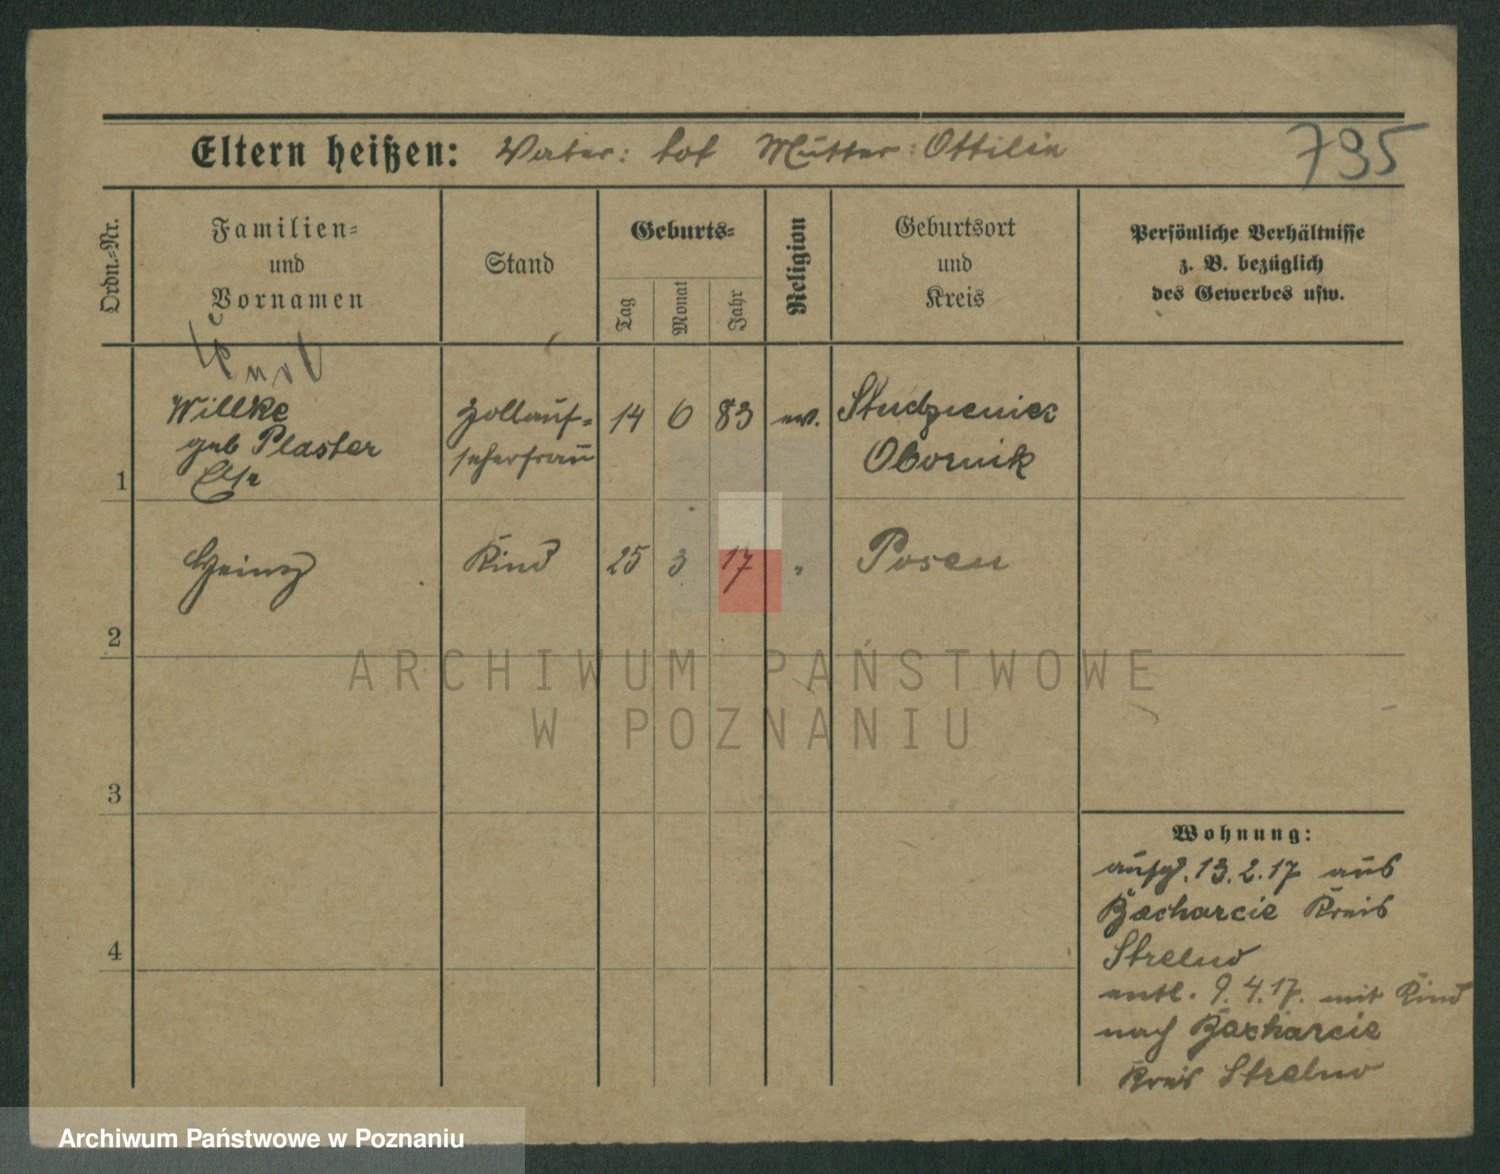 Eltern heißen: Vater: tot Mutter: Ottilie
795
Ordn.-Nr.
Familien-
und
Vornamen
Stand
Geburts-
Tag
Monat
Jahr
Religion
Geburtsort
und
Kreis
Persönliche Verhältnisse
z. B. bezüglich
des Gewerbes usw.
1
Willke
geb Plaster
Else
Zollauf-
seherfrau
14 6 83 ev.
Studzieniec
Obornik
2
Heinz
Kind
25 3 17 "
Posen
3
4
Wohnung:
aufg. 13.2.17 aus
Kreis
Strelno
entl. 9.4.17. mit Kind
nach
Kreis Strelno
ARCHIWUM PAŃSTWOWE
W POZNANIU
Archiwum Państwowe w Poznaniu